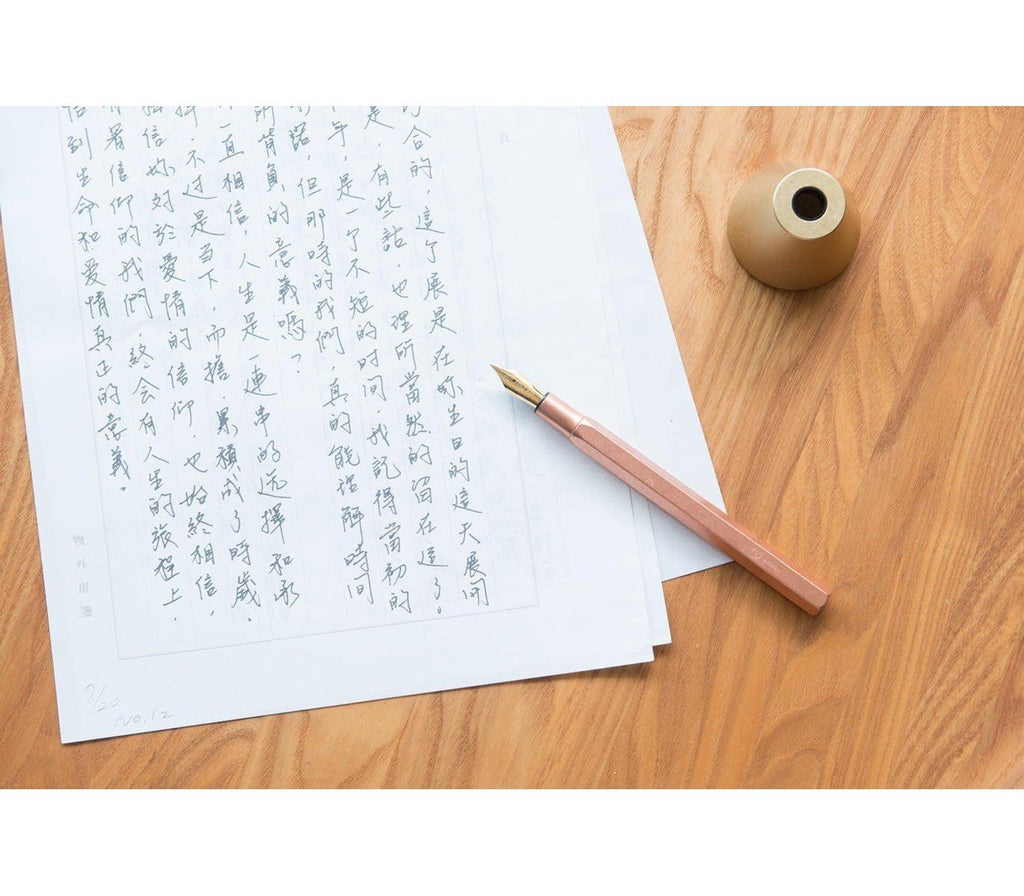 合的，這个展是在妳生日的這天展開
是，有些話，也理所當然的留在這了。
年，是一个不短的时间，我記得當初的
諾，但那時的我們，真的能理解時间
所背負的意義嗎？
一直相信，人生是一連串的选擇和承
不过是当下，而擔，累積成了時歲、
相信妳对於愛情的信仰，也始終相信，
著信仰的我們，終会有人生的旅程上，
悟到生命和爱情真正的意義。
物外用箋
7/20
NO.12